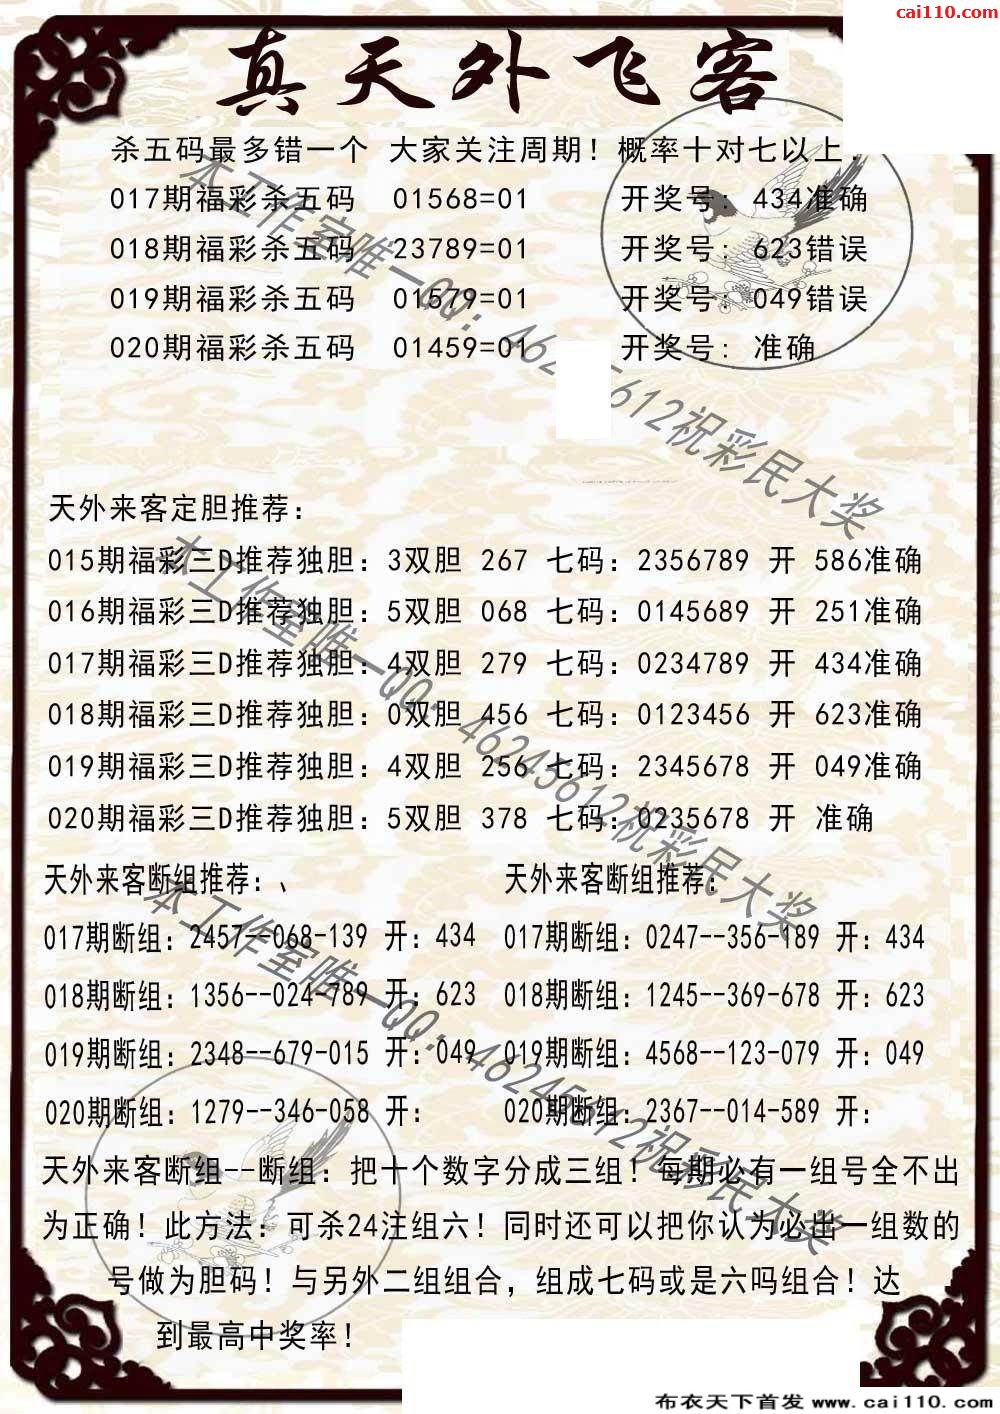 cai110.com
真天外飞客
杀五码最多错一个 大家关注周期！概率十对七以上！
017期福彩杀五码 01568=01 开奖号: 434准确
018期福彩杀五码 23789=01 开奖号: 623错误
019期福彩杀五码 01579=01 开奖号: 049错误
020期福彩杀五码 01459=01 开奖号: 准确
天外来客定胆推荐:
015期福彩三D推荐独胆: 3双胆 267 七码: 2356789 开 586准确
016期福彩三D推荐独胆: 5双胆 068 七码: 0145689 开 251准确
017期福彩三D推荐独胆: 4双胆 279 七码: 0234789 开 434准确
018期福彩三D推荐独胆: 0双胆 456 七码: 0123456 开 623准确
019期福彩三D推荐独胆: 4双胆 256 七码: 2345678 开 049准确
020期福彩三D推荐独胆: 5双胆 378 七码: 0235678 开 准确
天外来客断组推荐:、 天外来客断组推荐:
017期断组: 2457--068-139 开: 434 017期断组: 0247--356-189 开: 434
018期断组: 1356--024-789 开: 623 018期断组: 1245--369-678 开: 623
019期断组: 2348--679-015 开: 049 019期断组: 4568--123-079 开: 049
020期断组: 1279--346-058 开: 020期断组: 2367--014-589 开:
天外来客断组--断组: 把十个数字分成三组！每期必有一组号全不出
为正确！此方法: 可杀24注组六！同时还可以把你认为必出一组数的
号做为胆码！与另外二组组合，组成七码或是六吗组合！达
到最高中奖率！
本工作室唯一QQ: 46245612祝彩民大奖
本工作室唯一QQ: 46245612祝彩民大奖
本工作室唯一QQ: 46245612祝彩民大奖
布衣天下首发 www.cai110.com